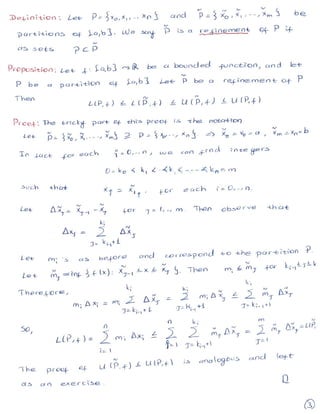 Definition: Let P = {x₀, x₁, ... xₙ} and P̃ = {x̃₀, x̃₁, ..., x̃ₘ} be
partitions of [a,b]. We say P̃ is a refinement of P if
as sets P ⊂ P̃
Proposition: Let f: [a,b] → ℝ be a bounded function, and let
P be a partition of [a,b]. Let P̃ be a refinement of P
Then L(P,f) ≤ L(P̃,f) ≤ U(P̃,f) ≤ U(P,f)
Proof: The tricky part of this proof is the notation
Let P̃ = {x̃₀, x̃₁, ..., x̃ₘ} ⊇ P = {x₀, ..., xₙ} ⇒ x̃₀ = x₀ = a, x̃ₘ = xₙ = b
In fact for each j = 0, ... n, we can find integers
0 = k₀ < k₁ < ... < kₙ = m
such that xⱼ = x̃ₖⱼ, for each i = 0, ... n.
Let Δx̃ⱼ = x̃ⱼ₋₁ - x̃ⱼ for j = 1, ... m. Then observe that
Δxⱼ = Σ Δx̃ⱼ
Let mᵢ as before and correspond to the partition P.
Let m̃ⱼ = inf {f(x): x̃ⱼ₋₁ ≤ x ≤ x̃ⱼ}. Then mᵢ ≤ m̃ⱼ for kᵢ₋₁+1 ≤ j ≤ k
Therefore, mᵢ Δxᵢ = mᵢ Σ Δx̃ⱼ = Σ mᵢ Δx̃ⱼ ≤ Σ m̃ⱼ Δx̃ⱼ
So, L(P,f) = Σ mᵢ Δxᵢ ≤ Σ Σ m̃ⱼ Δx̃ⱼ = Σ m̃ⱼ Δx̃ⱼ = L(P̃,
The proof of U(P̃,f) ≤ U(P,f) is analogous and left
as an exercise. □
3